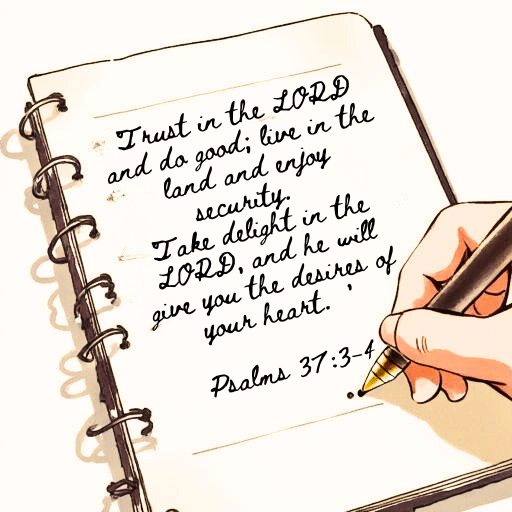 'Trust in the LORD
and do good; live in the
land and enjoy
security.
Take delight in the
LORD, and he will
give you the desires of
your heart. '
Psalms 37:3-4